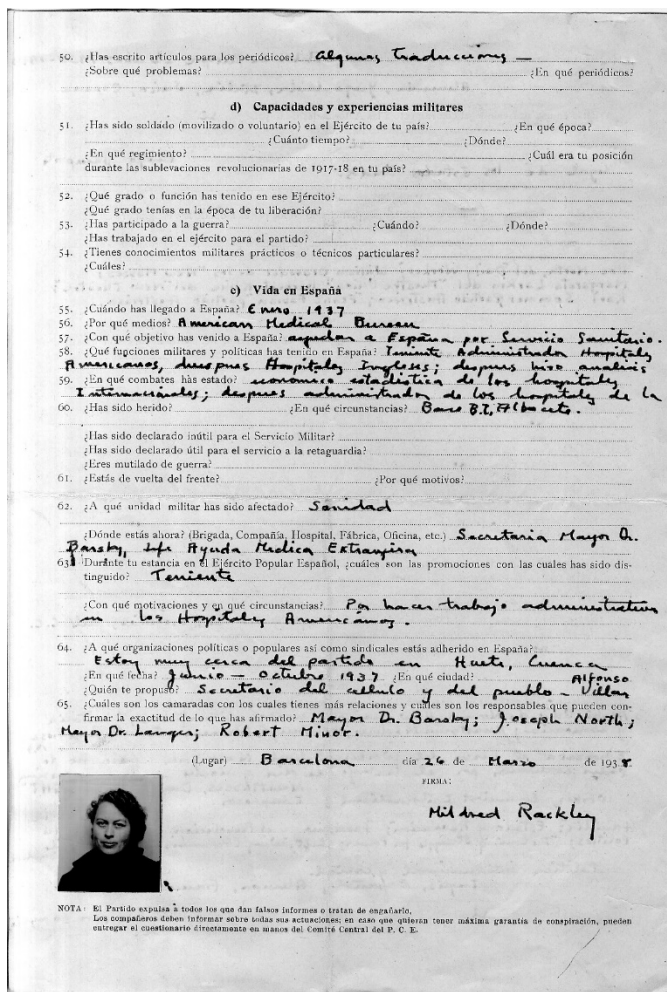 50. ¿Has escrito artículos para los periódicos? Algunas traducciones —
¿Sobre qué problemas? ¿En qué periódicos?
d) Capacidades y experiencias militares
51. ¿Has sido soldado (movilizado o voluntario) en el Ejército de tu país? ¿En qué época?
¿Cuánto tiempo? ¿Dónde?
¿En qué regimiento? ¿Cuál era tu posición
durante las sublevaciones revolucionarias de 1917-18 en tu país?
52. ¿Qué grado o función has tenido en ese Ejército?
¿Qué grado tenías en la época de tu liberación?
53. ¿Has participado a la guerra? ¿Cuándo? ¿Dónde?
¿Has trabajado en el ejército para el partido?
54. ¿Tienes conocimientos militares prácticos o técnicos particulares?
¿Cuáles?
e) Vida en España
55. ¿Cuándo has llegado a España? Enero 1937
56. ¿Por qué medios? American Medical Bureau
57. ¿Con qué objetivo has venido a España? ayudar a España por Servicio Sanitario.
58. ¿Qué fugciones militares y políticas has tenido en España? Teniente Administrador Hospitales
Americanos, duespues Hospitales Ingleses; despues hizo analisis
59. ¿En qué combates has estado? economico estadistica de los hospitales
Internacionales; despues administrador de los hospitales de la
60. ¿Has sido herido? ¿En qué circunstancias? Base B.I, Albacete.
¿Has sido declarado inútil para el Servicio Militar?
¿Has sido declarado útil para el servicio a la retaguardia?
¿Eres mutilado de guerra?
61. ¿Estás de vuelta del frente? ¿Por qué motivos?
62. ¿A qué unidad militar has sido afectado? Sanidad
¿Dónde estás ahora? (Brigada, Compañía, Hospital, Fábrica, Oficina, etc.) Secretaria Mayor Dr.
Barsky, Jefe Ayuda Medica Extranjera
63. Durante tu estancia en el Ejército Popular Español, ¿cuáles son las promociones con las cuales has sido dis-
tinguido? Teniente
¿Con qué motivaciones y en qué circunstancias? Por hacer trabajo administrativo
en los Hospitales Americanos.
64. ¿A qué organizaciones políticas o populares así como sindicales estás adherido en España?
Estoy muy cerca del partido en Huete, Cuenca
¿En qué fecha? Junio — Octubre 1937 ¿En qué ciudad? Alfonso
¿Quién te propuso? Secretario del cellulo y del pueblo - Villar
65. ¿Cuáles son los camaradas con los cuales tienes más relaciones y cuáles son los responsables que pueden con-
firmar la exactitud de lo que has afirmado? Mayor Dr. Barsky; Joseph North;
Mayor Dr. Langer; Robert Minor.
(Lugar) Barcelona día 26 de Marzo de 1938.
FIRMA:
Mildred Rackley
NOTA: El Partido expulsa a todos los que dan falsos informes o tratan de engañarlo.
Los compañeros deben informar sobre todas sus actuaciones; en caso que quieran tener máxima garantía de conspiración, pueden
entregar el cuestionario directamente en manos del Comité Central del P. C. E.